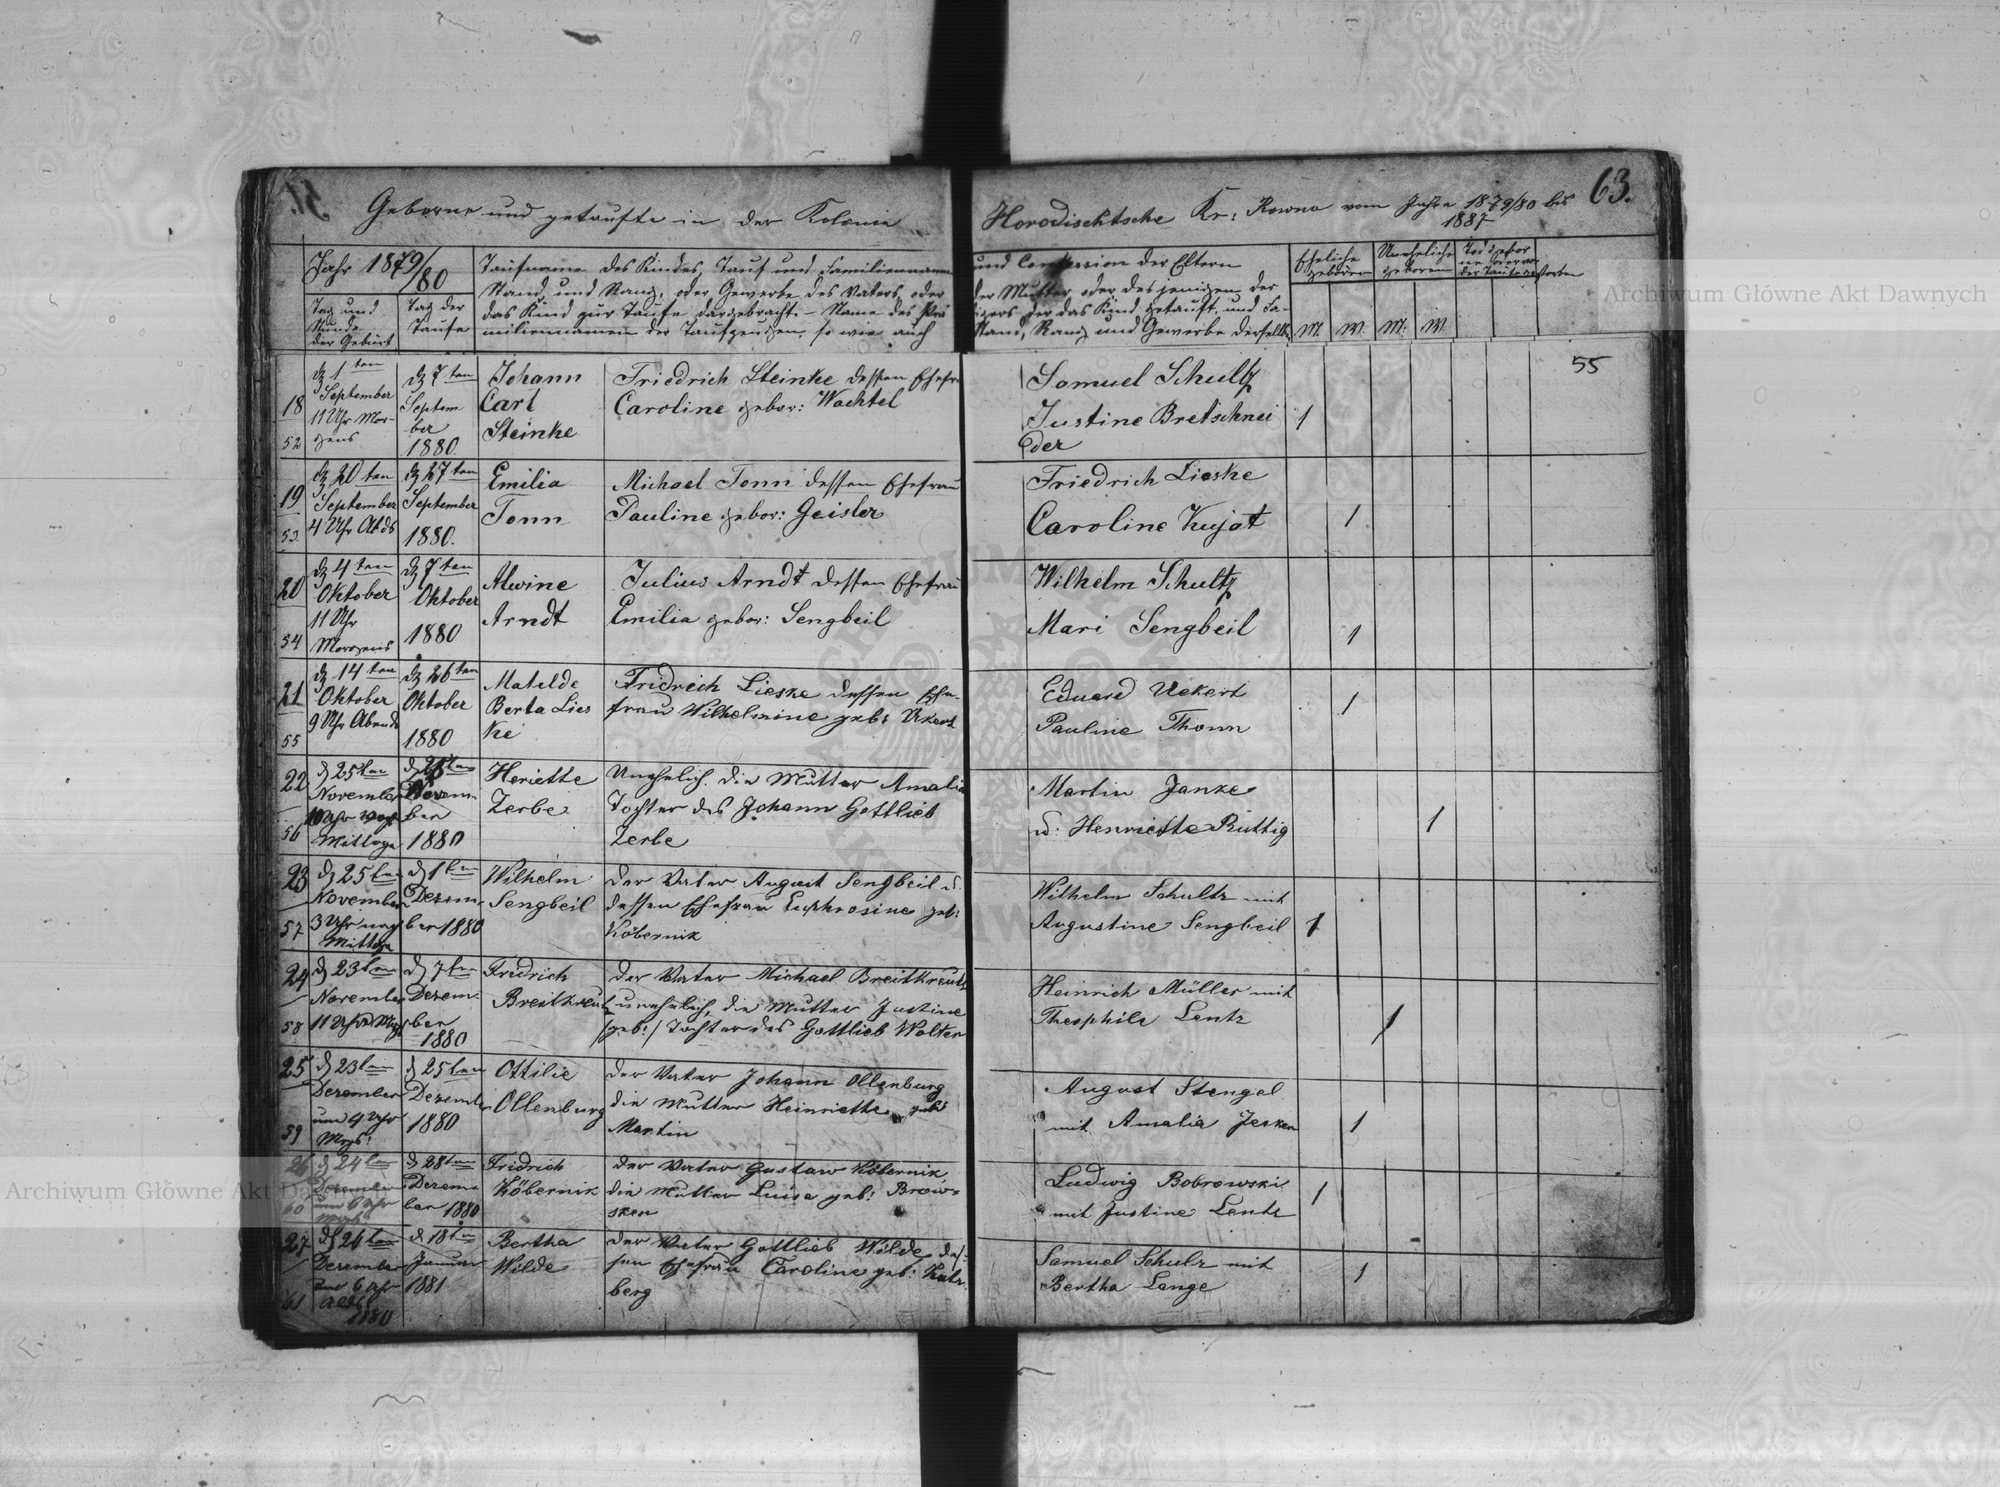 63.
Geborne und getaufte in der Kolonie Horodischtsche Kr: Rowno vom Jahre 1879/80 bis
1887
Jahr 1879/80
Tag und
Stunde
der Geburt
Tag der
Taufe
Taufname des Kindes, Tauf und Familiennamen
Stand und Rang, oder Gewerbe des Vaters oder
das Kind zur Taufe dargebracht. – Name des
miliennamen der Taufzeugen, so wie auch
und Confession der Eltern
der Mutter oder desjenigen der
der das Kind getauft, und Fa-
Stand, Rang und Gewerbe derselb
Eheliche
geboren
Uneheliche
geboren
Tod gebor
ne oder vor
der Taufe gestorben
M. W. M: W.
55
18
52
d 1 ten
September
11 Uhr Mor-
gens
d 7 ten
Septem
ber
1880.
Johann
Carl
Steinke
Friedrich Steinke dessen Ehefr
Caroline gebor: Wachtel
Samuel Schultz
Justine Bretschnei
der
1
19
53
d 20 ten
September
4 Uhr Abds
d 27 ten
September
1880.
Emilia
Tonn
Michael Tonn dessen Ehefrau
Pauline gebor: Geisler
Friedrich Lieske
Caroline Kujat
1
20
54
d 4 ten
Oktober
11 Uhr
Morgens
d 7 ten
Oktober
1880
Alwine
Arndt
Julius Arndt dessen Ehefrau
Emilia gebor: Sengbeil
Wilhelm Schultz
Mari Sengbeil
1
21
55
d 14 ten
Oktober
9 Uhr Abends
d 26 ten
Oktober
1880
Matelde
Berta Lies
ke
Fridreich Lieske dessen Ehe-
frau Wilhelmine geb: Ukert
Eduard Uckert
Pauline Thonn
1
22
56
d 25 ten
November
10 Uhr Vor
Mittags
Novem-
ber
1880
Heriette
Zerbe
Unehelich. die Mutter Amalia
Tochter des Johann Gottlieb
Zerbe
Martin Janze
u: Henriette Ruttig
1
23
57
d 25 ten
November
3 Uhr nach
Mittags
d 1 ten
Dezem-
ber 1880
Wilhelm
Sengbeil
Der Vater August Sengbeil u.
dessen Ehefrau Euphrosine geb:
Köbernik
Wilhelm Schultz mit
Augustine Sengbeil
1
24
58
d 23 ten
November
11 Uhr Mgs
d 7 ten
Dezem-
ber
1880
Fridrich
Breitkreutz
Der Vater Michael Breitkreutz
unehelich, die Mutter Justine
/geb:/ Tochter des Gottlieb Wolter
Heinrich Müller mit
Theophile Lentz
1
25
59
d 23 ten
Dezember
um 4 Uhr
Mgs:
d 25 ten
Dezemb
1880
Ottilie
Ollenburg
Der Vater Johann Ollenburg
die Mutter Heinriette geb:
Martin
August Stengel
mit Amalia Jesken
1
26
60
d 24 ten
Dezember
um 6 Uhr
Mgs:
d 28 ten
Dezem
ber 1880
Fridrich
Köbernik
Der Vater Gustaw Köbernik
die Mutter Luise geb: Brow-
sken
Ludwig Bobrowski
mit Justine Lentz
1
27
61
d 26 ten
Dezember
um 6 Uhr
Abds
1880
d 18 ten
Januar
1881
Bertha
Wilde
Der Vater Gottlieb Wilde des-
sen Ehefrau Caroline geb: Katz
berg
Samuel Schulz mit
Bertha Lange
1
Archiwum Główne Akt Dawnych
Archiwum Główne Akt Dawnych